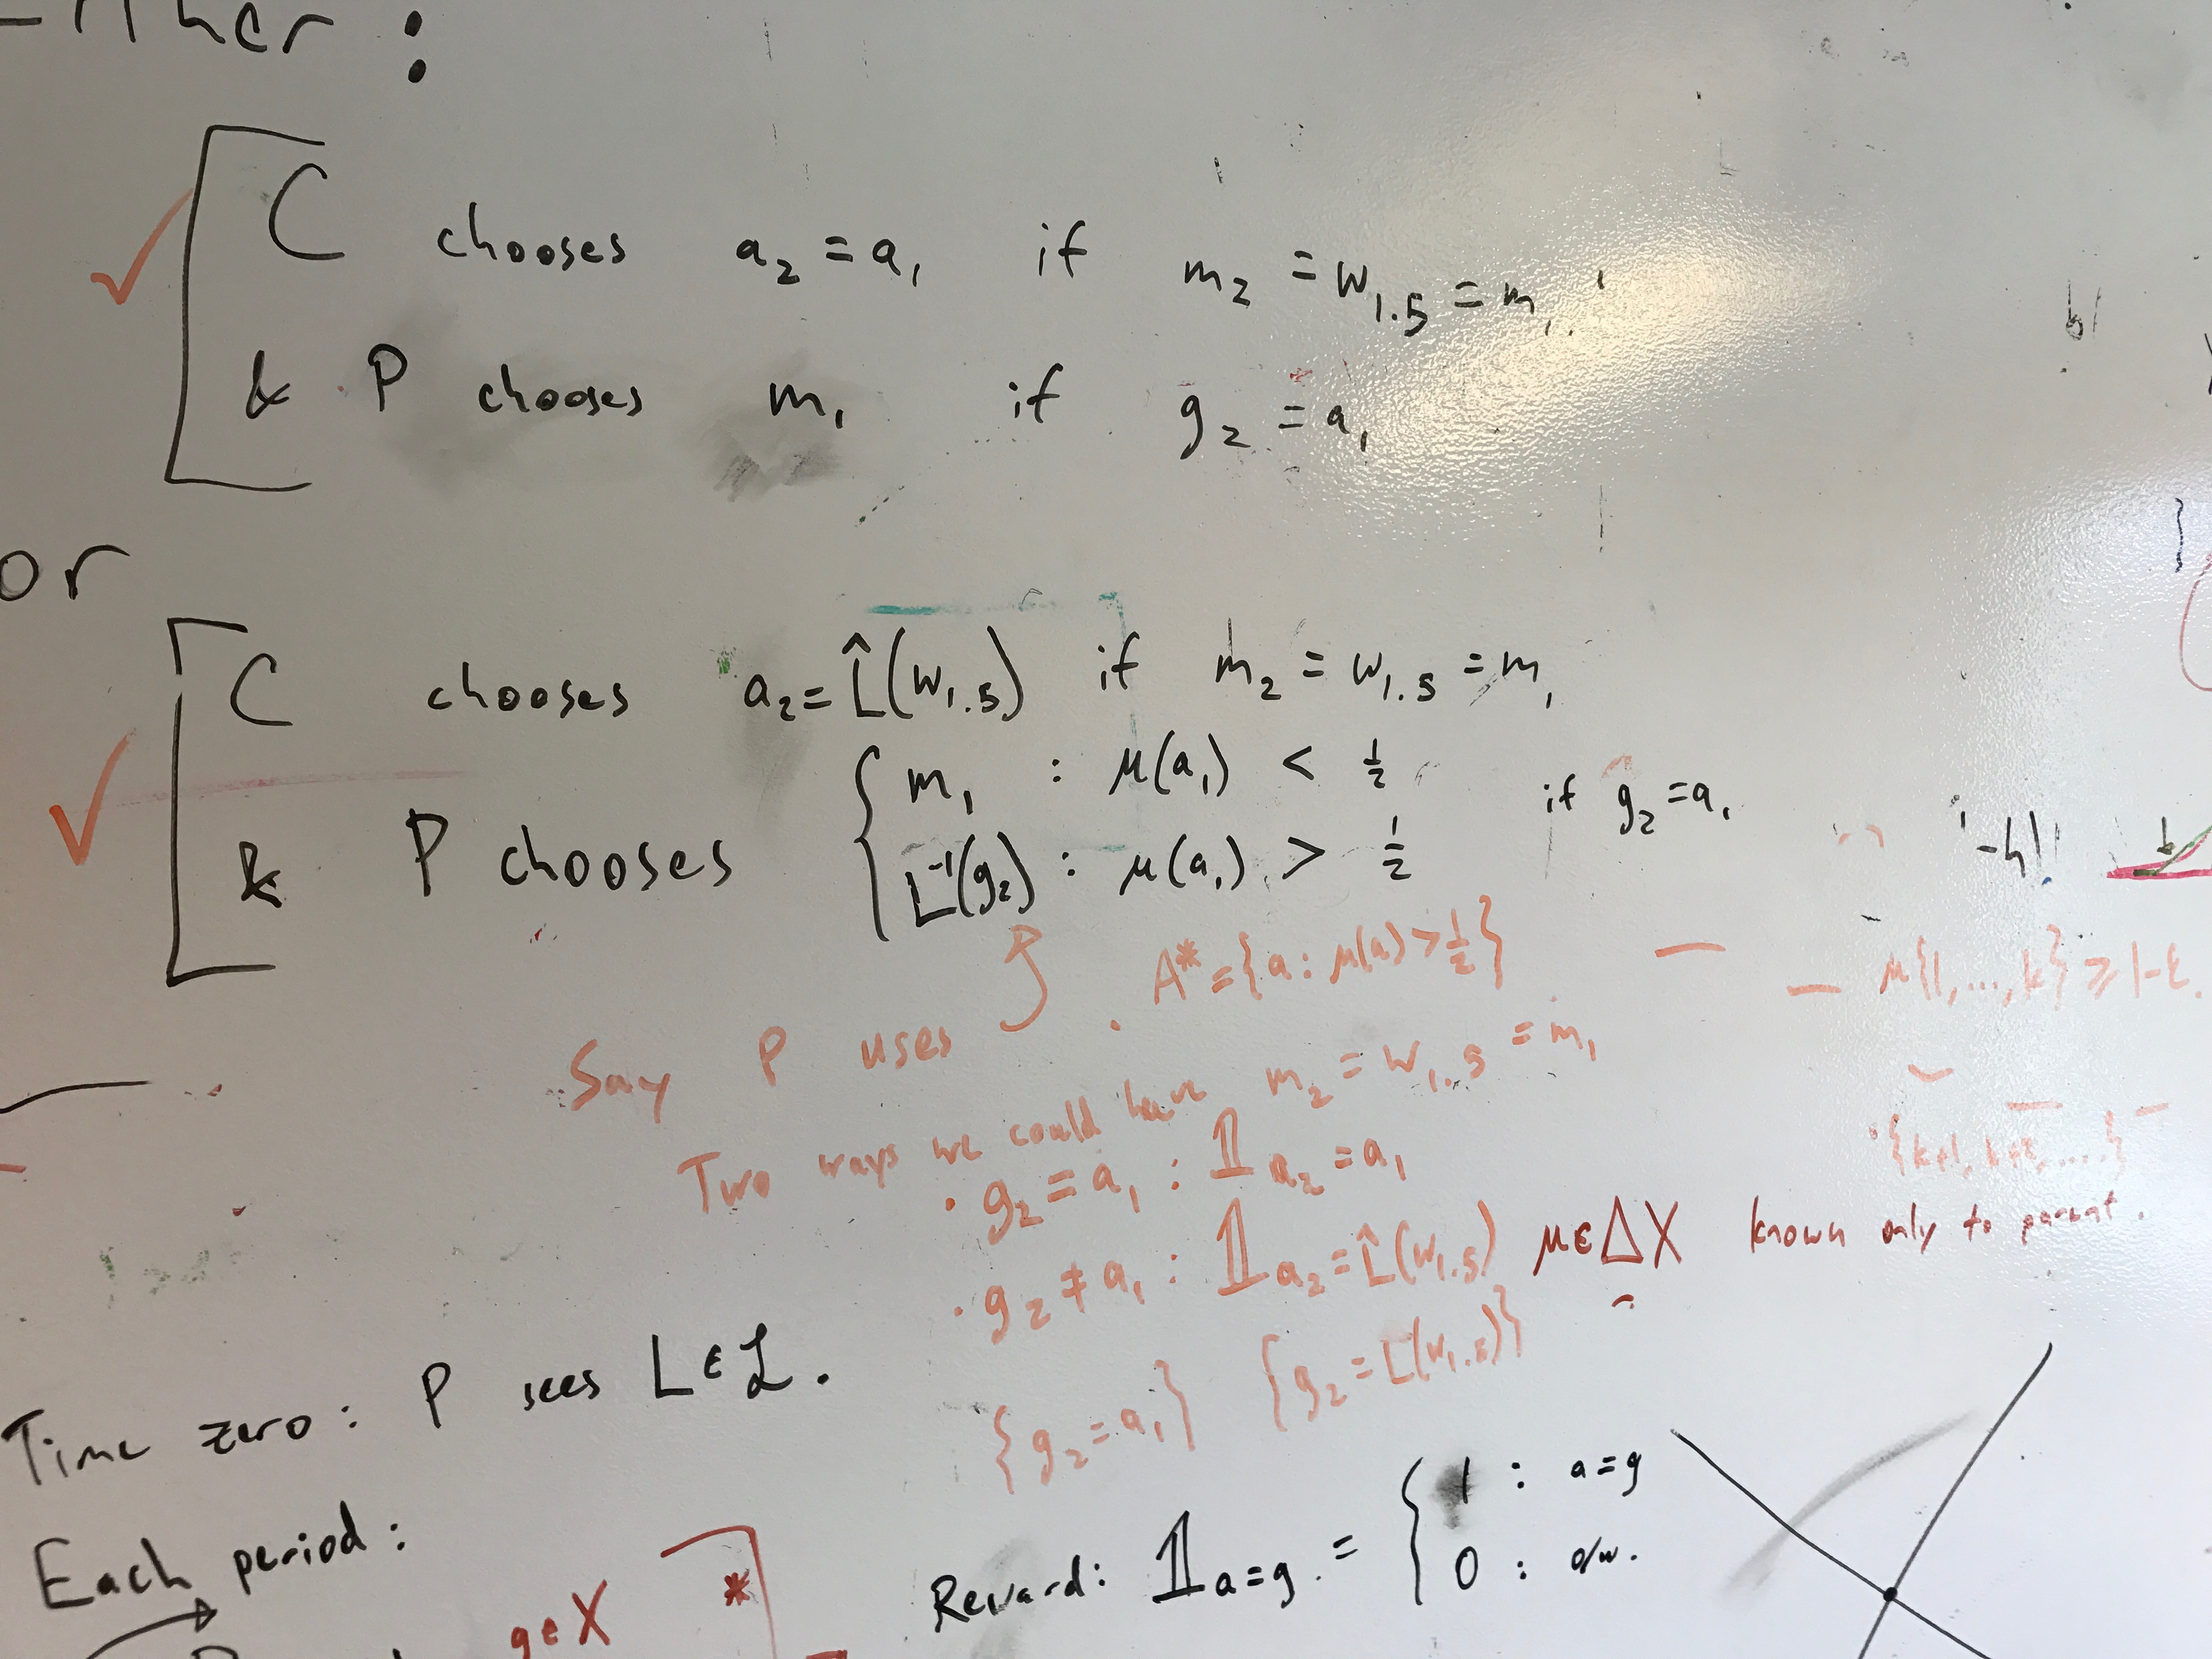 C chooses a₂ = a₁ if m₂ = w₁.₅ = m₁
& P chooses m₁ if g₂ = a₁
or
C chooses a₂ = L̂(w₁.₅) if m₂ = w₁.₅ = m₁
& P chooses { m₁ : μ(a₁) < ½
L⁻¹(g₂) : μ(a₁) > ½ if g₂ = a₁
A* = {a : μ(a) > ½}
μ{1,...,k} ≥ 1-ε.
Say P uses
Two ways we could have m₂ = w₁.₅ = m₁
{k+1, k+2, ....}
· g₂ = a₁ : 𝟙 a₂ = a₁
· g₂ ≠ a₁ : 𝟙 a₂ = L̂(w₁.₅)
μ ∈ ΔX known only to parent.
{g₂ = a₁} {g₂ = L(w₁.₅)}
Time zero : P sees L ∈ ℒ .
Each period :
g ∈ X *
Reward : 𝟙 a=g . = { 1 : a = g
0 : o/w.